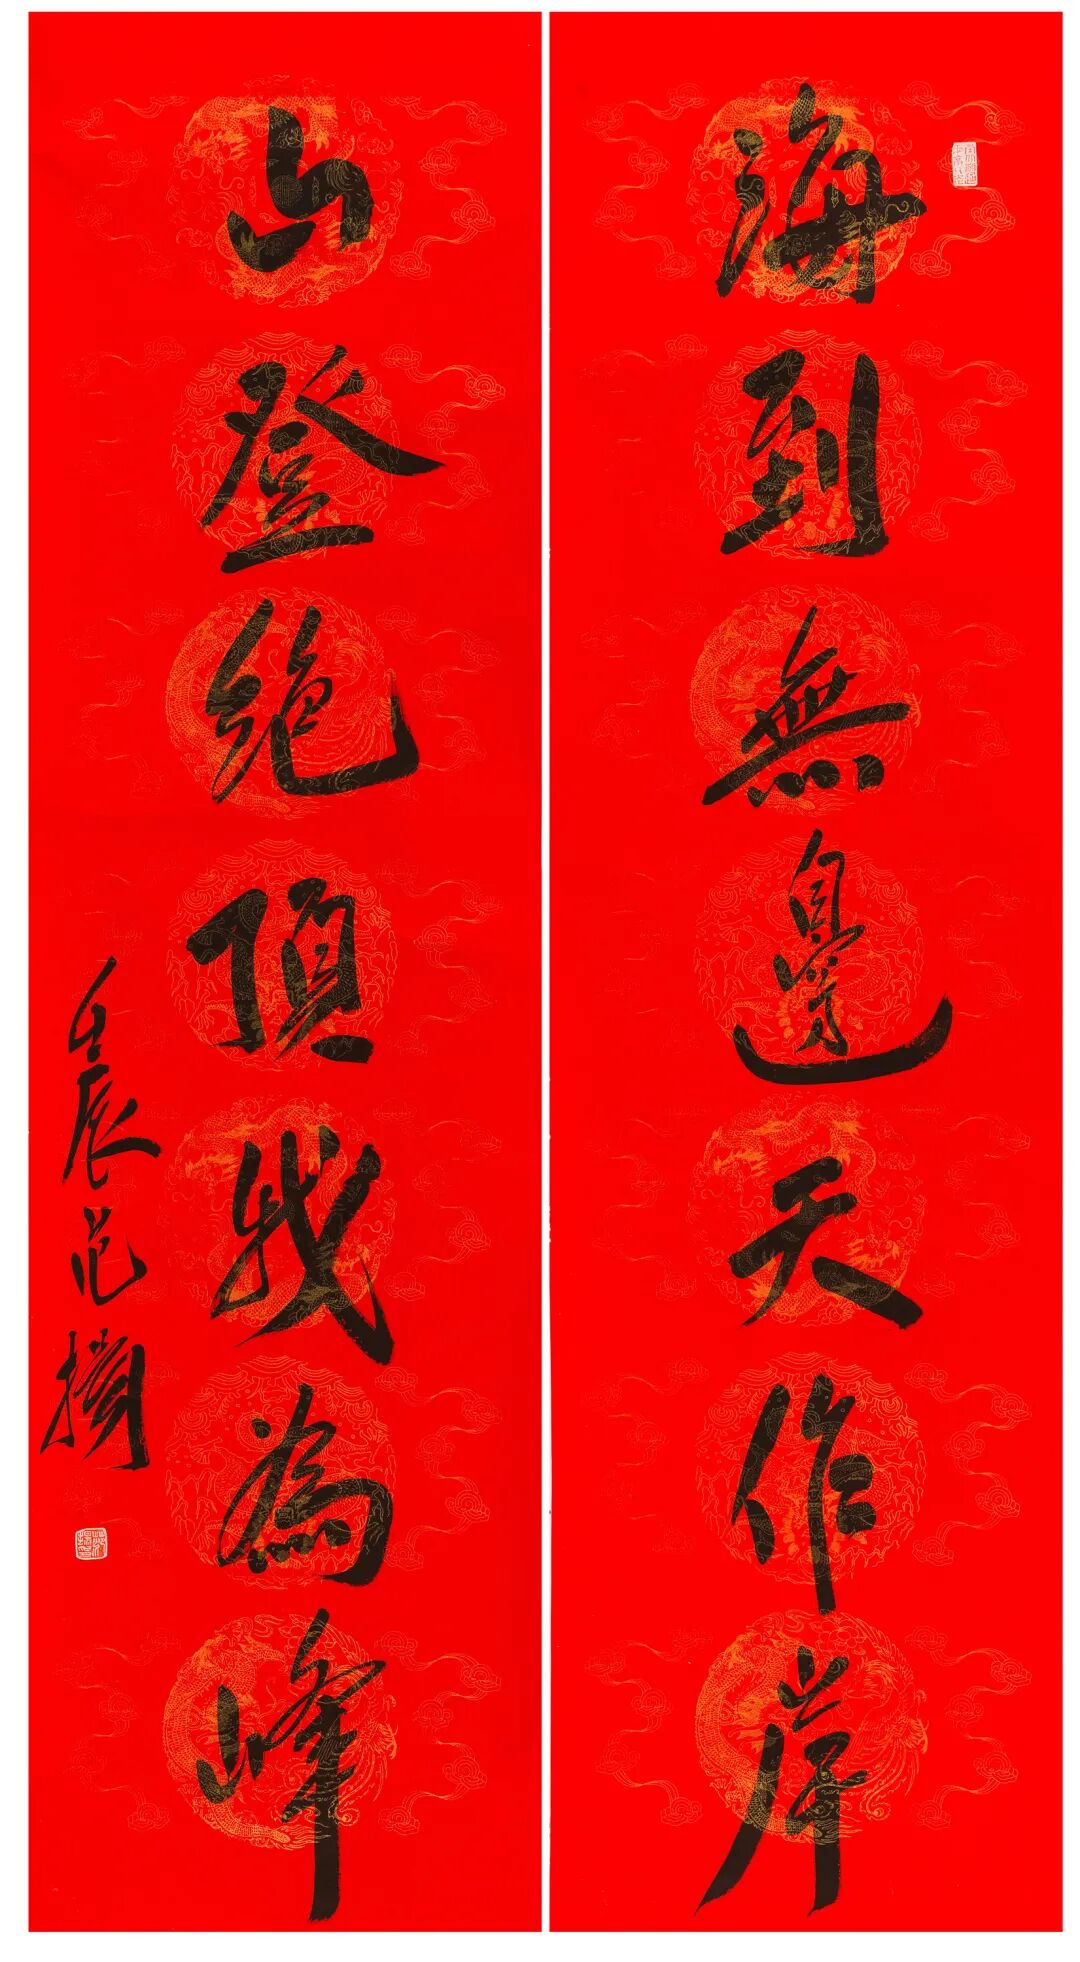 海到無邊天作岸
山登绝頂我為峰
壬辰范